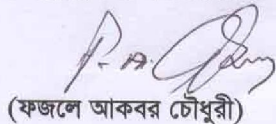 (ফজলে আকবর চৌধুরী)